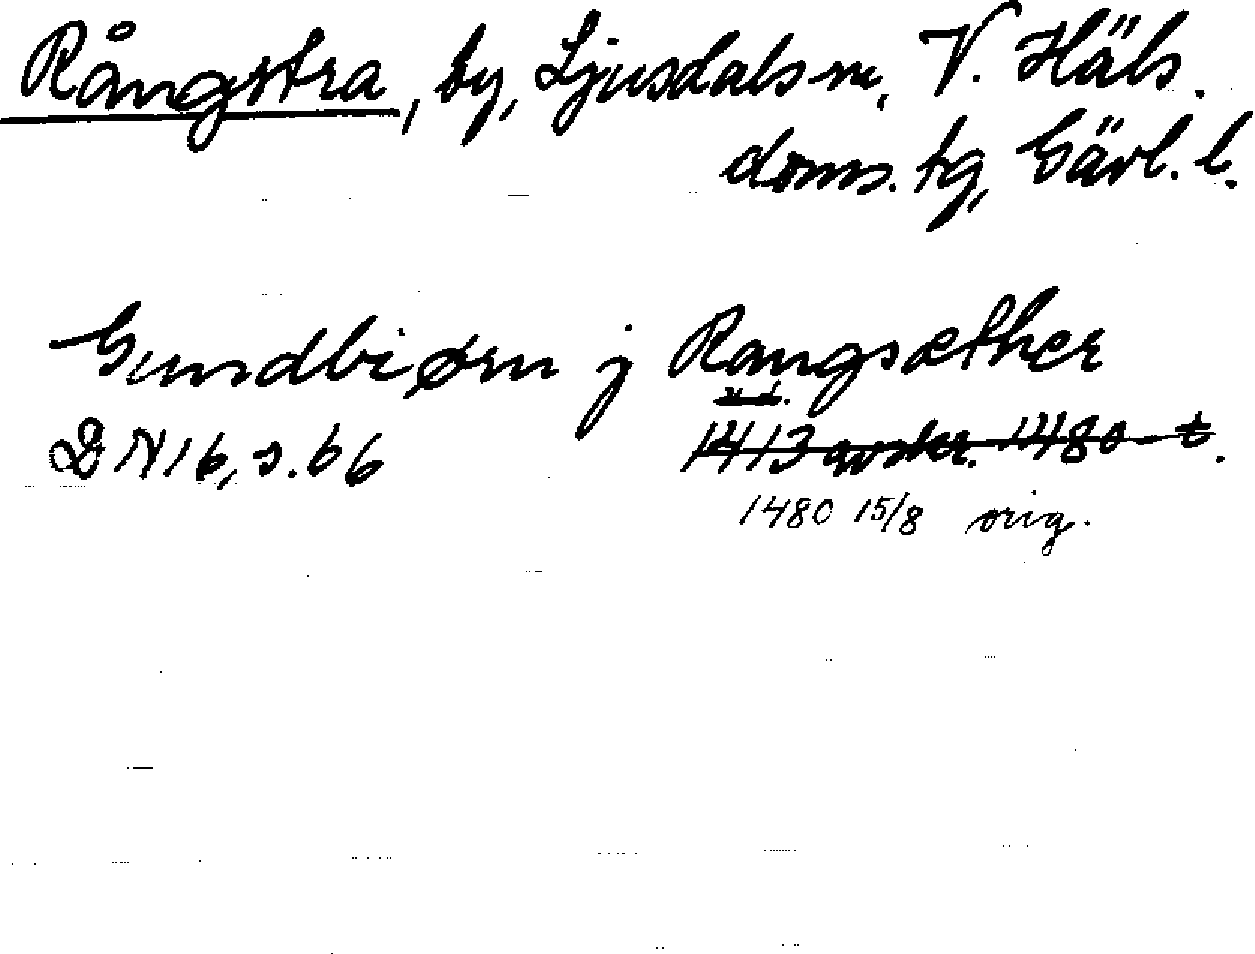 Rångstra, by, Ljusdals sn, V. Häls.
doms. tg, Gävl. l.
Gundbiørn j Rangsæther
u.d.
DN 16, s. 66 1413 avskr. 1480-t.
1480 15/8 orig.